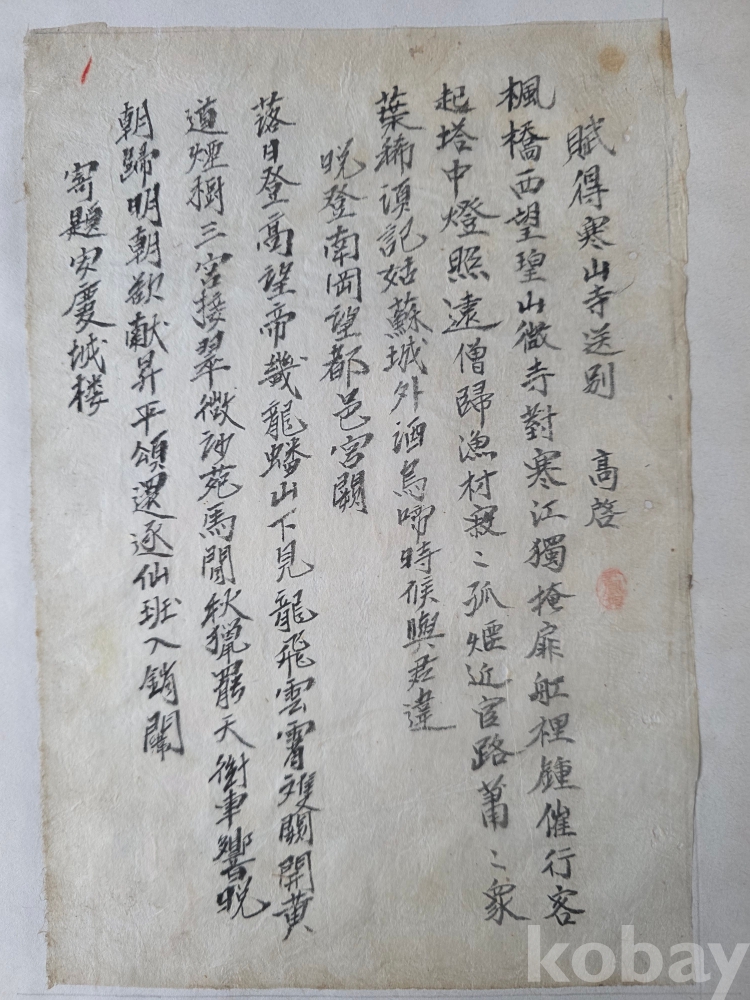 賦得寒山寺送別　高啓
楓橋西望瑝山微寺對寒江獨掩扉舡裡鍾催行客
起塔中燈照遠僧歸漁村寂〻孤烟近官路蕭〻衆
葉稀須記姑蘇城外酒烏啼時候與君違
晩登南岡望都邑宮闕
落日登高望帝畿龍蟠山下見龍飛雲霄雙闕開黄
道煙樹三宮接翠微沙苑馬閒秋獵罷天街車響晩
朝歸明朝欲献昇平頌還逐仙班入鎖闈
寄題安慶城楼
kobay